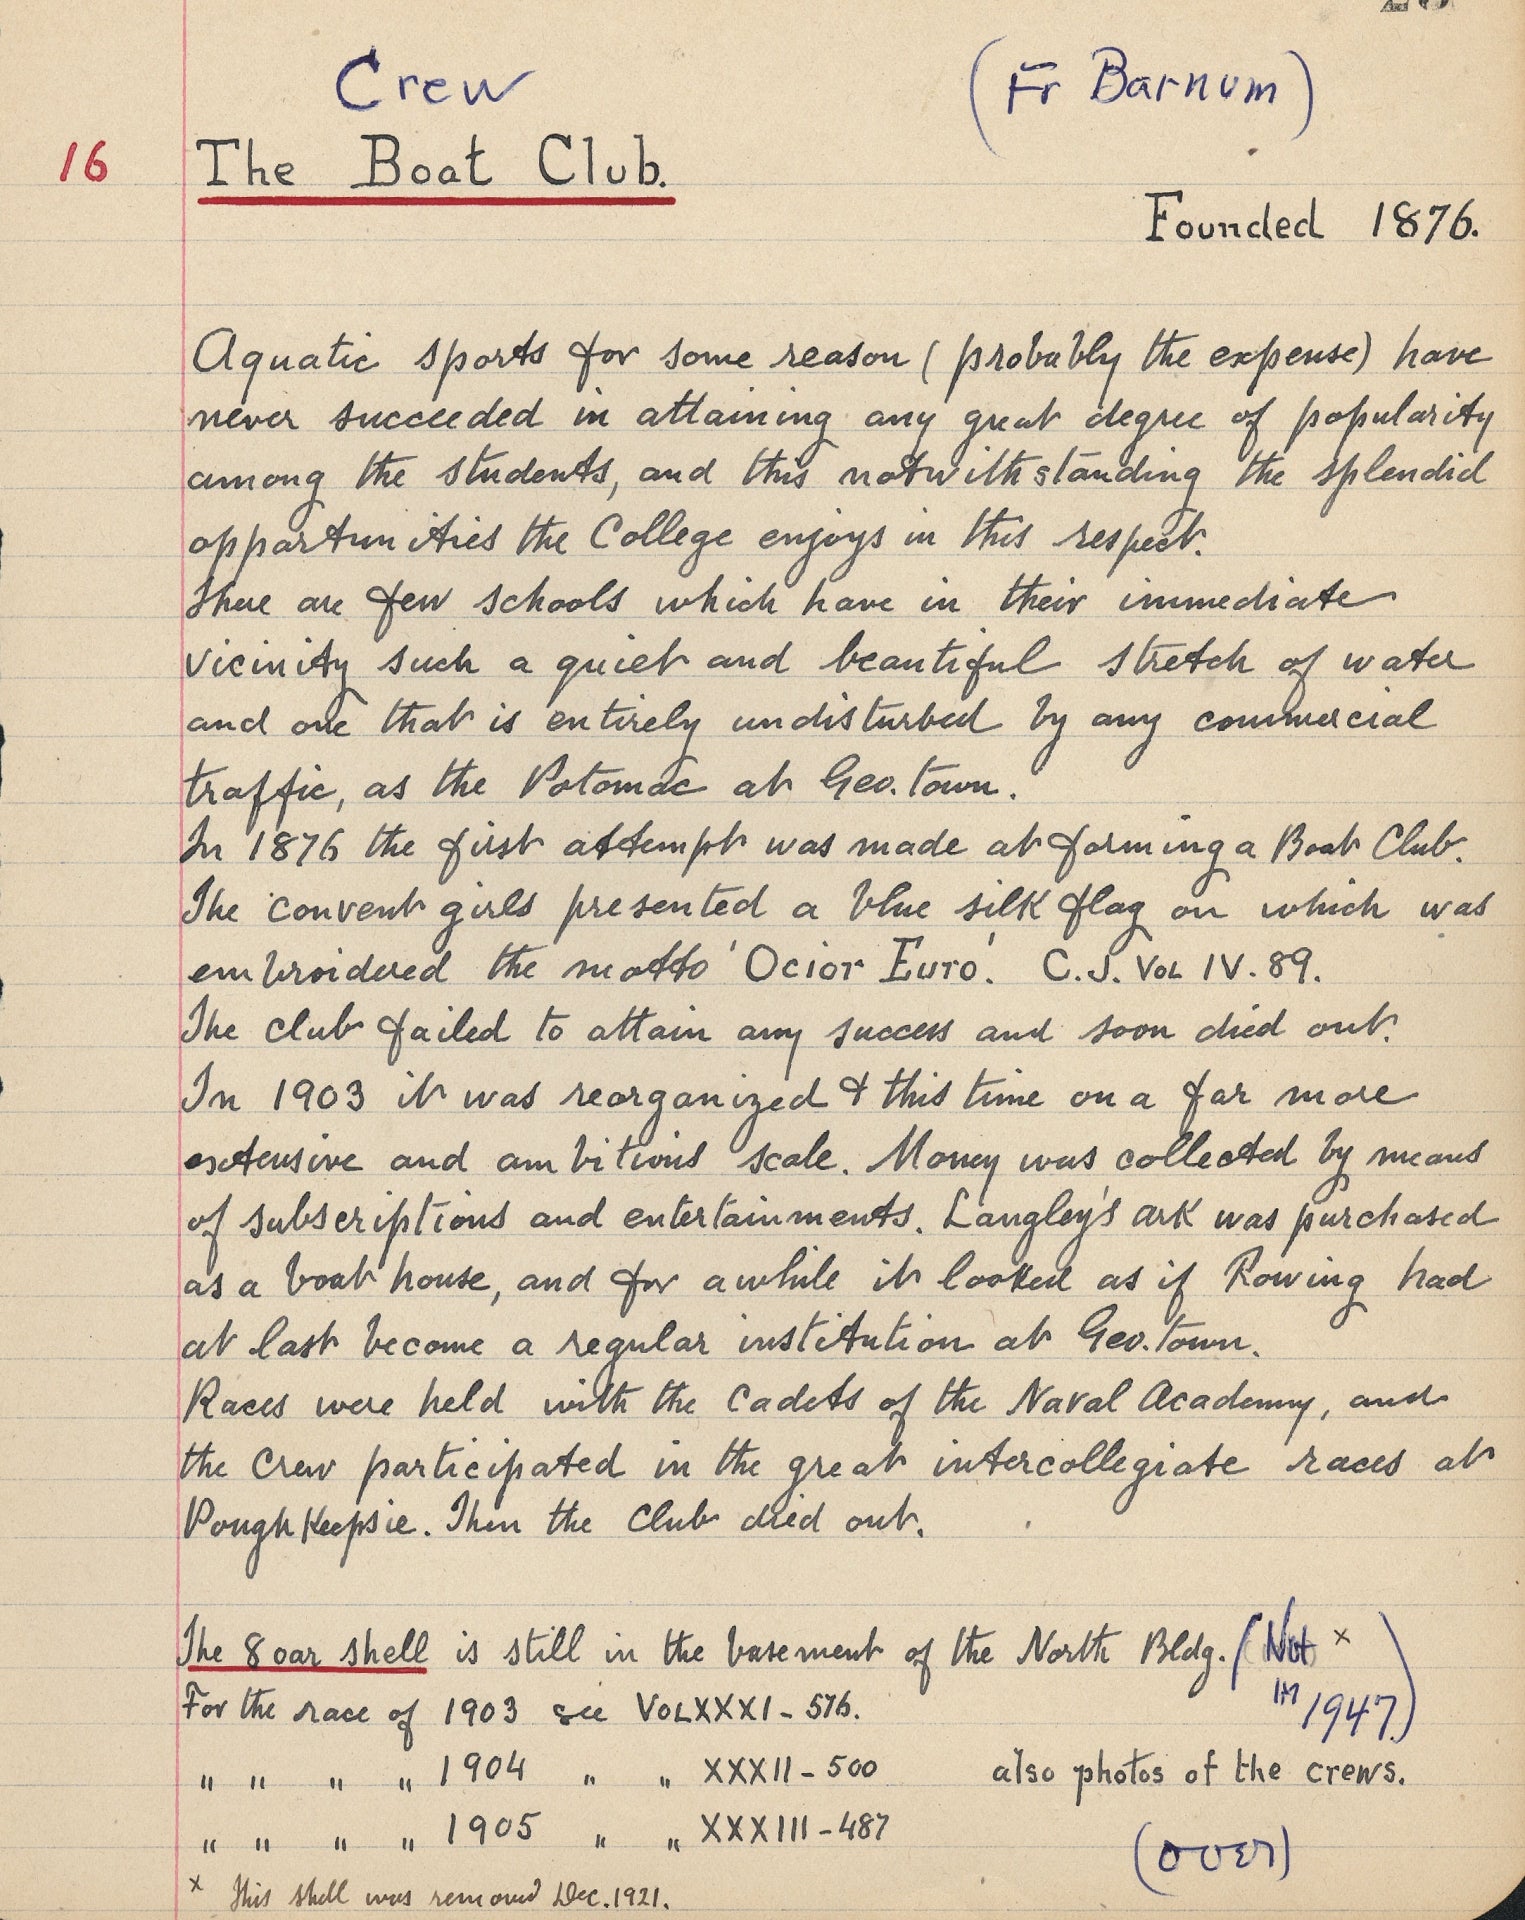 Crew (Fr Barnum)
16 The Boat Club.
Founded 1876.
Aquatic sports for some reason (probably the expense) have
never succeeded in attaining any great degree of popularity
among the students, and this notwithstanding the splendid
opportunities the College enjoys in this respect.
There are few schools which have in their immediate
vicinity such a quiet and beautiful stretch of water
and one that is entirely undisturbed by any commercial
traffic, as the Potomac at Geo.town.
In 1876 the first attempt was made at forming a Boat Club.
The convent girls presented a blue silk flag on which was
embroidered the motto 'Ocior Euro'. C.J. Vol IV. 89.
The club failed to attain any success and soon died out.
In 1903 it was reorganized & this time on a far more
extensive and ambitious scale. Money was collected by means
of subscriptions and entertainments. Langley's ark was purchased
as a boat house, and for awhile it looked as if Rowing had
at last become a regular institution at Geo.town.
Races were held with the Cadets of the Naval Academy, and
the Crew participated in the great intercollegiate races at
Poughkeepsie. Then the Club died out.
The 8 oar shell is still in the basement of the North Bldg. (Not x
in 1947.)
For the race of 1903 see Vol XXXI - 576.
" " " " 1904 " " XXXII - 500 also photos of the crews.
" " " " 1905 " " XXXIII - 487
(over)
x This shell was removed Dec. 1921.